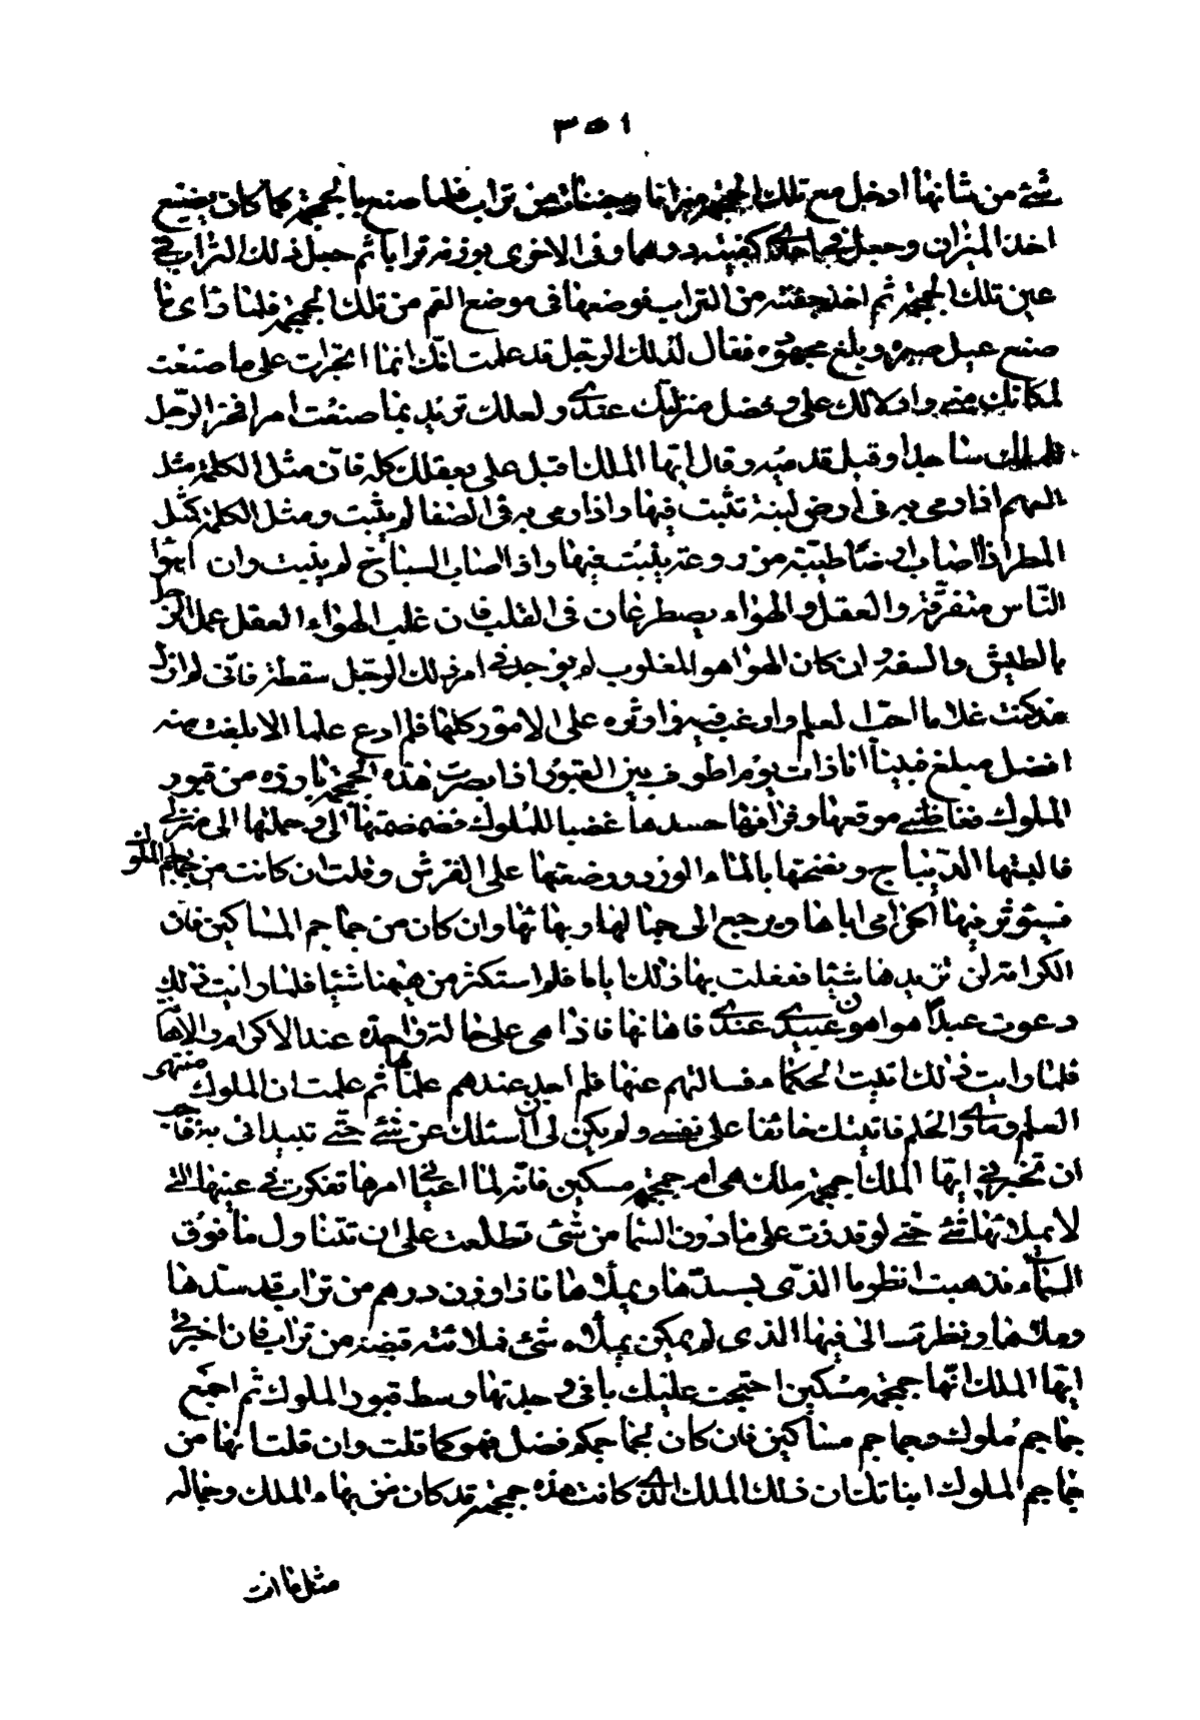 ٣٥١
شئ من شأنها ادخل مع تلك الجمجمة ميزانا وجفنات من تراب فلما صنع بالجمجمة كما كان يصنع
اخذ الميزان وجعل في احدى كفتيه درهما وفى الاخرى بوزنه ترابا ثم جعل ذلك التراب في
عين تلك الجمجمة ثم اخذ جفنة من التراب فوضعها في موضع الفم من تلك الجمجمة فلما راى ما
صنع عيل صبره وبلغ مجهوده فقال لذلك الرجل قد علمت انك انما اجترات على ما صنعت
لمكانك مني وادلالك علي وفضل منزلتك عندي ولعلك تريد بما صنعت امرا فخر الرجل
للملك ساجدا وقبل قدميه وقال ايها الملك اقبل علي بعقلك كله فان مثل الكلمة مثل
السهم اذا رمي به في ارض لينة تثبت فيها واذا رمي به في الصفا لم يثبت ومثل الكلمة كمثل
المطر اذا اصاب ارضا طيبة مزروعة ينبت فيها واذا اصاب السباخ لم ينبت وان اهواء
الناس متفرقة والعقل والهواء يصطرعان في القلب فان غلب الهواء العقل عمل الرجل
بالطيش والسفه وان كان الهوا هو المغلوب لم يوجد في امر ذلك الرجل سقطة فاني لم ازل
منذ كنت غلاما احب العلم وارغب فيه واوثره على الامور كلها فلم ادع علما الا بلغت منه
افضل مبلغ فبينا انا ذات يوم اطوف بين القبور اذا بصرت هذه الجمجمة بارزة من قبور
الملوك فغاظني موقعها وفراقها جسدها غضبا للملوك فضممتها الي وحملتها الى منزلي
فالبستها الديباج ونضحتها بالماء الورد ووضعتها على الفرش وقلت ان كانت من جماجم الملوك
فسيؤثر فيها اكرامي اياها ويرجع الى جمالها وبهائها وان كان من جماجم المساكين فان
الكرامة لن تزيدها شيئا ففعلت بها ذلك اياما فلم استنكر من هيئتها شيئا فلما رايت ذلك
دعوت عبدا هو اهون عبيدي عندي فاهانها فاذا هي على حالة واحدة عند الاكرام والاهانة
فلما رايت ذلك اتيت الحكماء فسالتهم عنها فلم اجد عندهم علما بها ثم علمت ان الملوك منتهى
العلم وماوى الحلم فاتيتك خائفا على نفسي ولم يكن لي ان اسئلك عن شئ حتى تبداني به فاحب
ان تخبرني ايها الملك اجمجمة ملك هي ام جمجمة مسكين فانه لما اعياني امرها تفكرت في عينها التي
لا يملائها شئ حتى لو قدرت على ما دون السما من شئ تطلعت على ان تتناول ما فوق
السماء فذهبت انظر ما الذي يسدها ويملاها فاذا وزن درهم من تراب قد سدها
وملاها ونظرت الى فيها الذى لم يكن يملاه شئ فملاته قبضة من تراب فان اخبرتني
ايها الملك انها جمجمة مسكين احتججت عليك باني وجدتها وسط قبور الملوك ثم اجمع
جماجم ملوك وجماجم مساكين فان كان لجماجمكم فضل فهو كما قلت وان قلت انها من
جماجم الملوك انباتك ان ذلك الملك الذي كانت هذه جمجمته قد كان من بهاء الملك وجماله
مثل ما انت